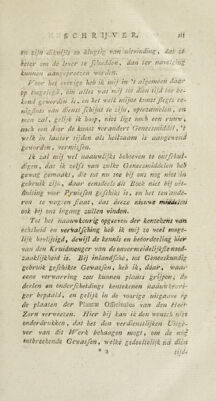 BESCHRIJVER. III
en zijn dikwijls zo klugtig van uitvinding, dat ze
beter om de leser te schudden, dan ter navolging
kunnen aangepreezen worden.
Voor het overige heb ik mij in 't algemeen daar
op toegelegd, om alles wat mij in dien tijd ter be-
kend geworden is, en het welk mijne konst slegts ee-
nigzins van dienst schijnt te zijn, optezamelen, en
men zal, gelijk ik hoop, niet ligt noch een ruuw,
noch een door de konst verandert Geneesmiddel, 't
welk in laater tijden als heilzaam is aangepreezen
geworden, vermissen.
Ik zal mij wel naauwelijks behoeven te ontschul-
digen, dat ik zelfs van zulke Geneesmiddelen heb
gewag gemaakt, die tot nu toe bij ons nog niet in
gebruik zijn, daar eensdeels dit Boek niet bij uit-
sluiting voor Pruissen geschikt is, en het ten ande-
ren te wagten staat, dat deeze nieuwe middelen
ook bij ons ingang zullen vinden.
Tot het naauwkeurig opgeeven der kentekens van
echtheid en vervalsching heb ik mij zo veel moge-
lijk bevlijtigd, dewijl de kennis en beoordeeling hier
van den Kruidmenger van de onvermijdelijkste nood-
zaaklijkheid is. Bij inlandsche, tot Geneeskundig
gebruik geschikte Gewassen, heb ik, daar, waar
eene verwarring zou kunnen plaats grijpen, de
deelen en onderscheidings kentekenen naauwkeuri-
ger bepaald, en gelijk in de vorige uitgaave op
de plaaten der Plantæ Officinales van den Heer
Zorn verweezen. Hier bij kan ik den wensch niet
onderdrukken, dat het den verdienstlijken Uitgee-
ver van dit Werk behaagen moge, om de nog
ontbreekende Gewassen, welke gedeeltelijk na dien
* 2 tijds